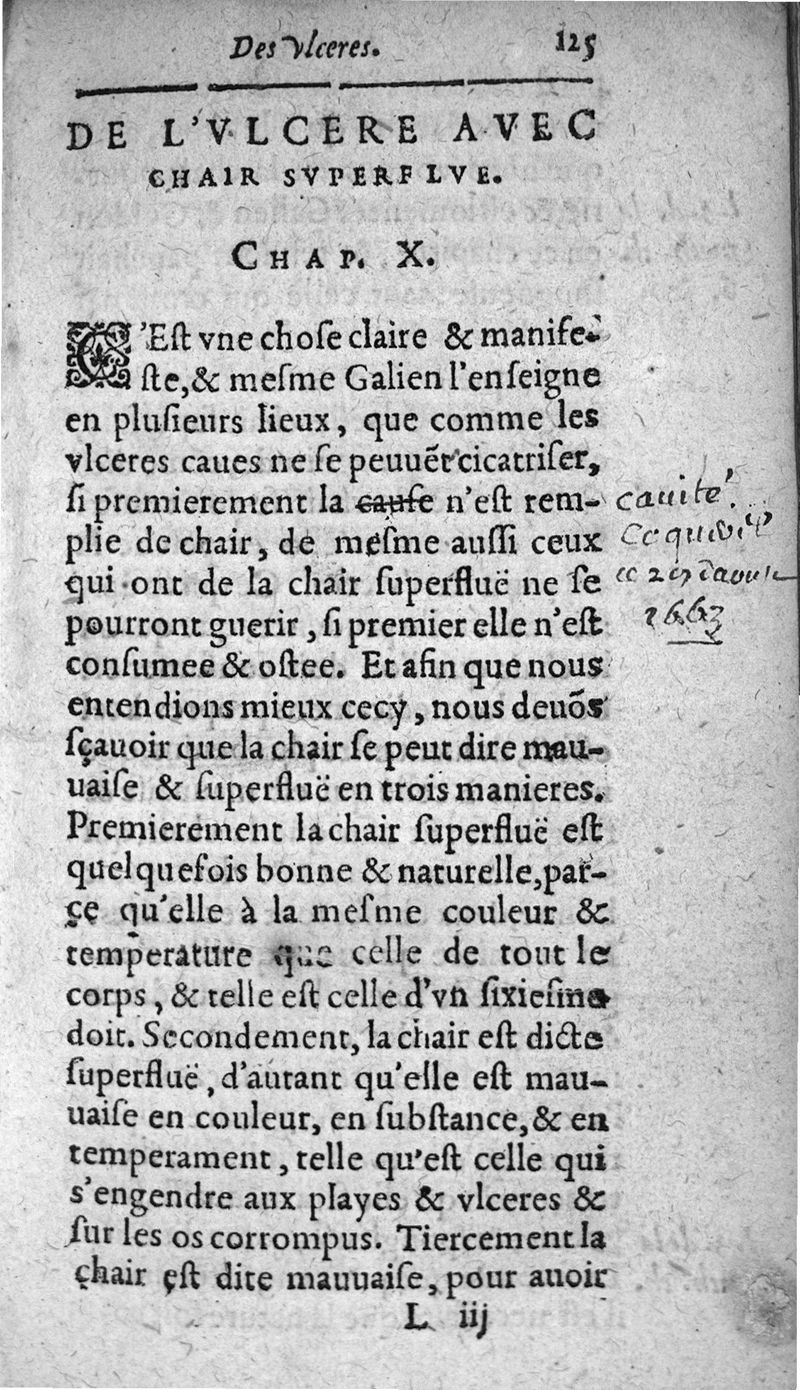 Des vlceres. 125
DE L'VLCERE AVEC
CHAIR SVPERFLVE.
CHAP. X.
C'Eſt vne choſe claire & manife-
ſte, & meſme Galien l'enſeigne
en pluſieurs lieux, que comme les
vlceres caues ne ſe peuuẽt cicatriſer,
ſi premierement la cauſe n'eſt rem-
plie de chair, de meſme auſſi ceux
qui ont de la chair ſuperfluë ne ſe
pourront guerir, ſi premier elle n'eſt
conſumee & oſtee. Et afin que nous
entendions mieux cecy, nous deuõs
ſçauoir que la chair ſe peut dire mau-
uaiſe & ſuperfluë en trois manieres.
Premierement la chair ſuperfluë eſt
quelquefois bonne & naturelle, par-
çe qu'elle à la meſme couleur &
temperature que celle de tout le
corps, & telle eſt celle d'vn ſixieſme
doit. Secondement, la chair eſt dicte
ſuperfluë, d'autant qu'elle eſt mau-
uaiſe en couleur, en ſubſtance, & en
temperament, telle qu'eſt celle qui
s'engendre aux playes & vlceres &
ſur les os corrompus. Tiercement la
chair eſt dite mauuaiſe, pour auoir
L iij
cauité.
ce 27
1663